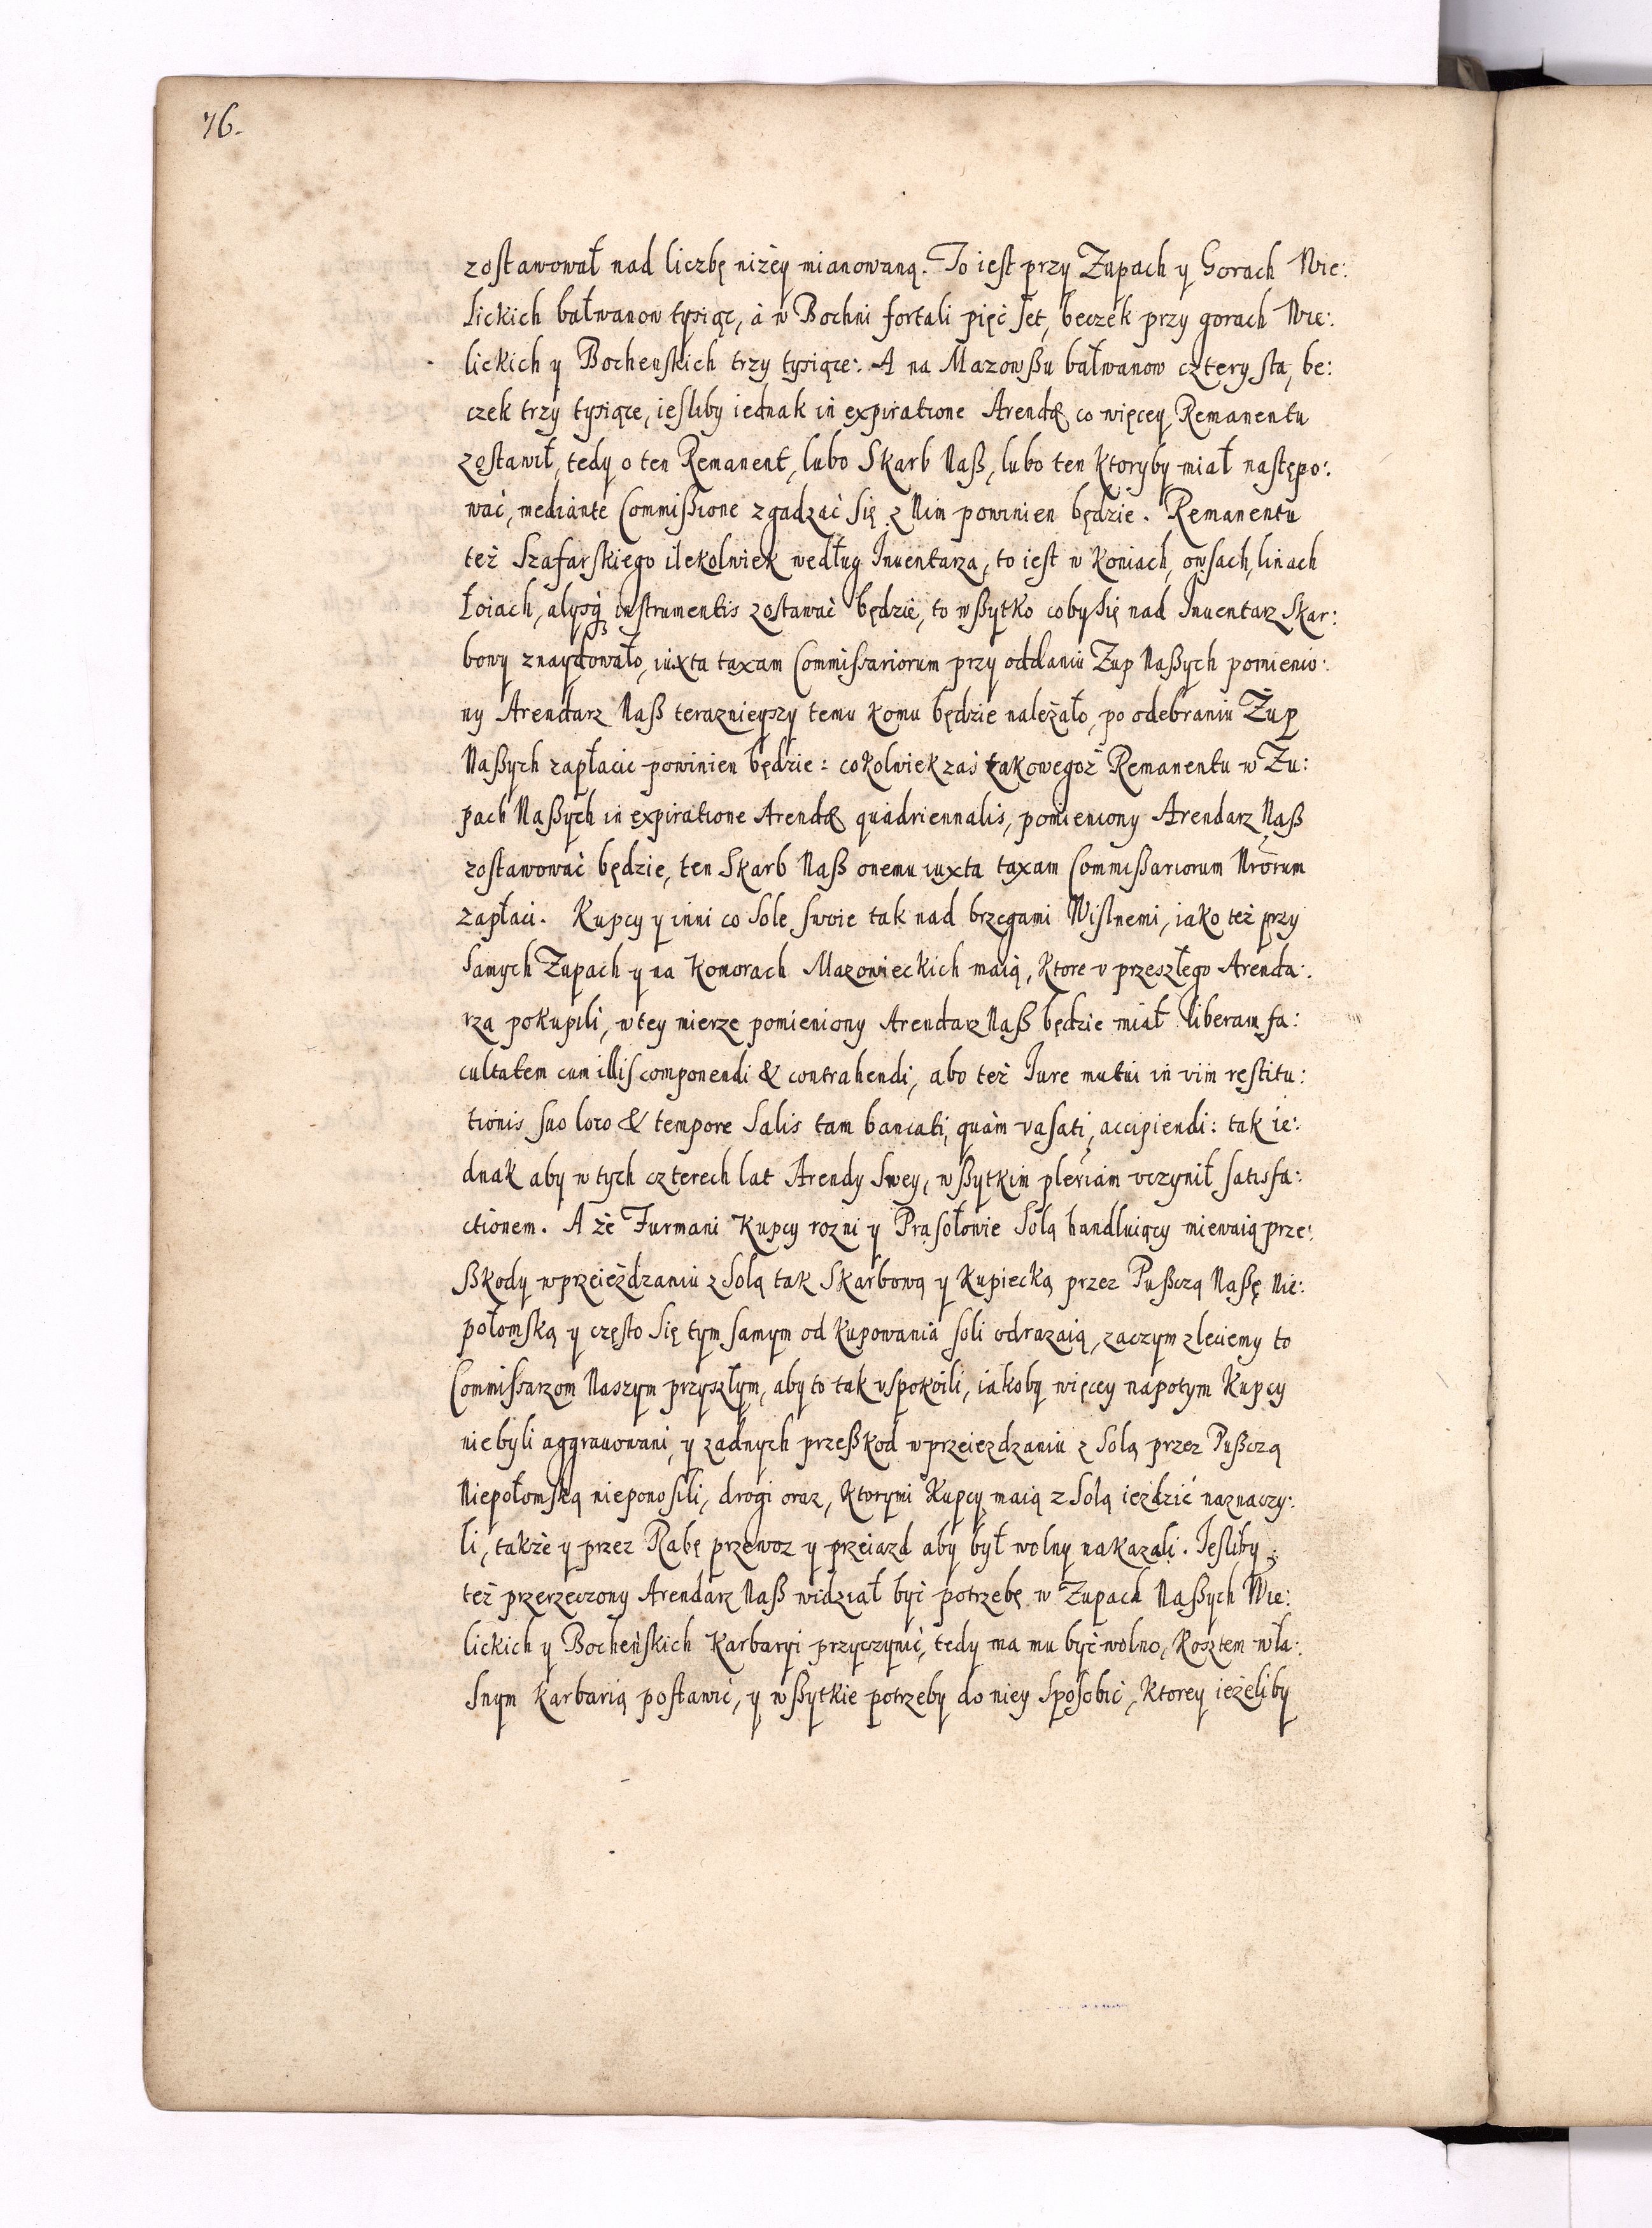 76.
zostawował nad liczbę niżey mianowaną. To iest przy Zupach y Gorach Wie:
lickich bałwanow tysiąc, à w Bochni fortali pięć set, beczek przy gorach Wie:
lickich y Bochenskich trzy tysiące: A na Mazowßu bałwanow cztery sta, be:
czek trzy tysiące, iesliby iednak in expiratione Arendæ co więcey Remanentu
zostawił, tedy o ten Remanent, lubo Skarb Naß, lubo ten ktoryby miał następo:
wać, mediante Commißione zgadzać się z Nim powinien będzie. Remanentu
też Szafarskiego ilekolwiek według Inuentarza, to iest w koniach, owsach, linach
Łoiach, alysq3 instrumentis zostawać będzie, to wßytko coby się nad Inuentarz Skar:
bowy znaydowało, iuxta taxam Commissariorum przy oddaniu Zup Naßych pomienio:
ny Arendarz Naß teraznieyszy temu komu będzie należało, po odebraniu Żup
Naßych zapłacic powinien będzie: cokolwiek zaś takowegoż Remanentu w Zu:
pach Naßych in expiratione Arendæ quadriennalis, pomieniony Arendarz Naß
zostawować będzie, ten Skarb Naß onemu iuxta taxam Commißariorum Nrorum
zapłaci. Kupcy y inni co Sole swoie tak nad brzegami Wislnemi, iako też przy
samych Zupach y na Komorach Mazowieckich maią, ktore v przeszłego Arenda:
rza pokupili, w tey mierze pomieniony Arendarz Naß będzie miał liberam fa:
cultatem cum illis componendi & contrahendi, abo też Iure mutui in vim restitu:
tionis suo loco & tempore Salis tam bancati, quàm vasati, accipiendi: tak ie:
dnak aby w tych czterech lat Arendy swey, wßytkim plenam vczynił satisfa:
ctionem. A że Furmani Kupcy rozni y Prasołowie Solą handluiący miewaią prze:
ßkody w przeieżdzaniu z Solą tak Skarbową y Kupiecką przez Pußczą Naßę Nie:
połomską y często się tym samym od kupowania soli odrazaią, zaczym zleciemy to
Commissarzom Naszym przyszłym, aby to tak vspokoili, iakoby więcey napotym Kupcy
niebyli aggrauowani, y zadnych przeßkod w przeiezdzaniu z Solą przez Pußczą
Niepołomską nieponosili, drogi oraz, ktorymi Kupcy maią z Solą iezdzić naznaczy:
li, także y przez Rabę przewoz y przeiazd aby był wolny nakazali. Iesliby
też przerzeczony Arendarz Naß widział być potrzebę w Zupach Naßych Wie:
lickich y Bocheńskich Karbaryi przyczynić, tedy ma mu być wolno, Kosztem wła:
snym karbarią postawić, y wßytkie potrzeby do niey sposobić, Ktorey ieżeliby